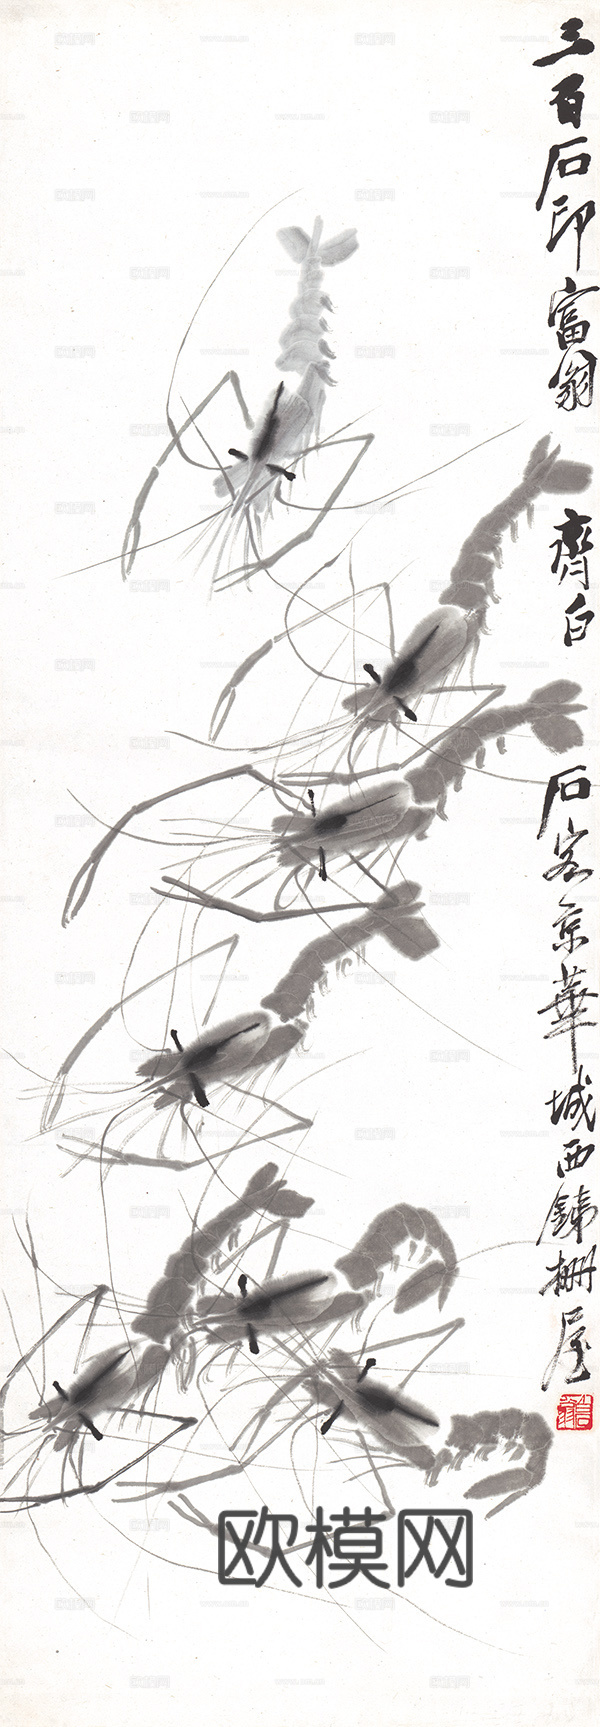 三百石印富翁 齊白石客京華城西鐵柵屋
欧模网